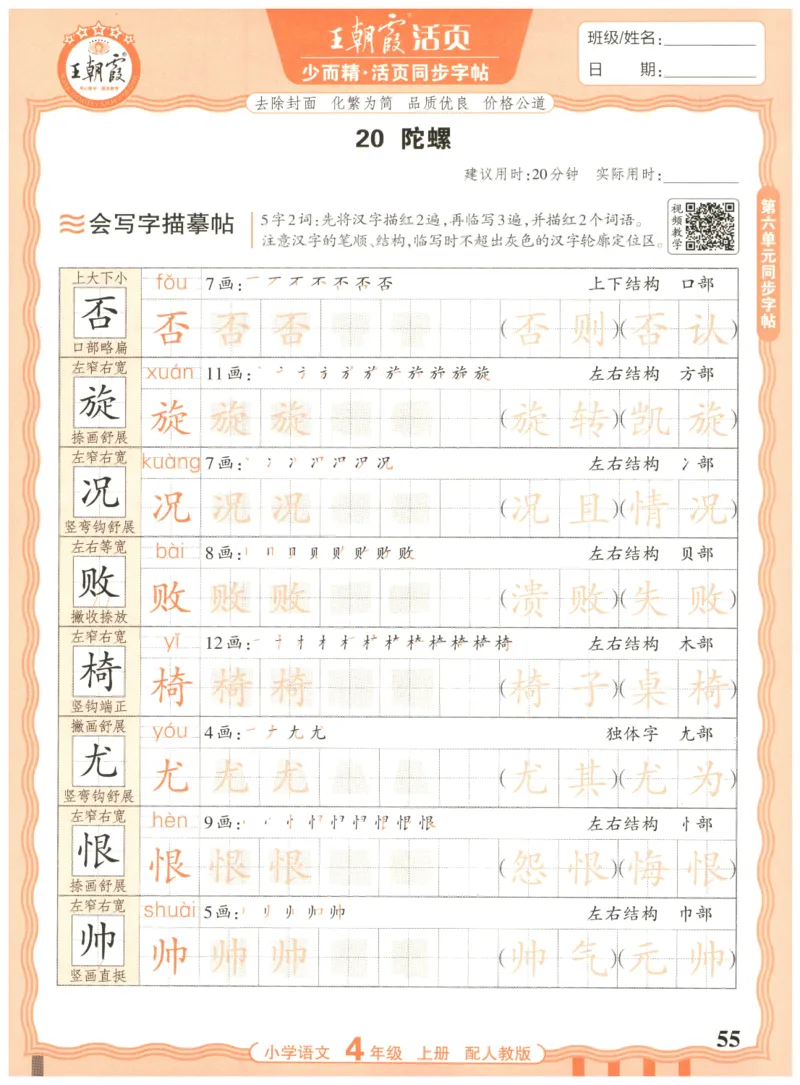 王朝霞
王朝霞 活页
少而精·活页同步字帖
班级/姓名:
日 期:
去除封面 化繁为简 品质优良 价格公道
20 陀螺
建议用时:20分钟 实际用时:
会写字描摹帖
5字2词:先将汉字描红2遍,再临写3遍,并描红2个词语。
注意汉字的笔顺、结构,临写时不超出灰色的汉字轮廓定位区。
视频教学
第六单元同步字帖
上大下小 fǒu 7画: 上下结构 口部
否 否 否 否 (否则)(否认)
口部略扁
左窄右宽 xuán 11画: 左右结构 方部
旋 旋 旋 旋 (旋转)(凯旋)
捺画舒展
左窄右宽 kuàng 7画: 左右结构 冫部
况 况 况 况 (况且)(情况)
竖弯钩舒展
左右等宽 bài 8画: 左右结构 贝部
败 败 败 败 (溃败)(失败)
撇收捺放
左窄右宽 yǐ 12画: 左右结构 木部
椅 椅 椅 椅 (椅子)(桌椅)
竖钩端正
撇画舒展 yóu 4画: 独体字 尢部
尤 尤 尤 尤 (尤其)(尤为)
竖弯钩舒展
左窄右宽 hèn 9画: 左右结构 忄部
恨 恨 恨 恨 (怨恨)(悔恨)
捺画舒展
左窄右宽 shuài 5画: 左右结构 巾部
帅 帅 帅 帅 (帅气)(元帅)
竖画直挺
55
小学语文 4年级 上册 配人教版